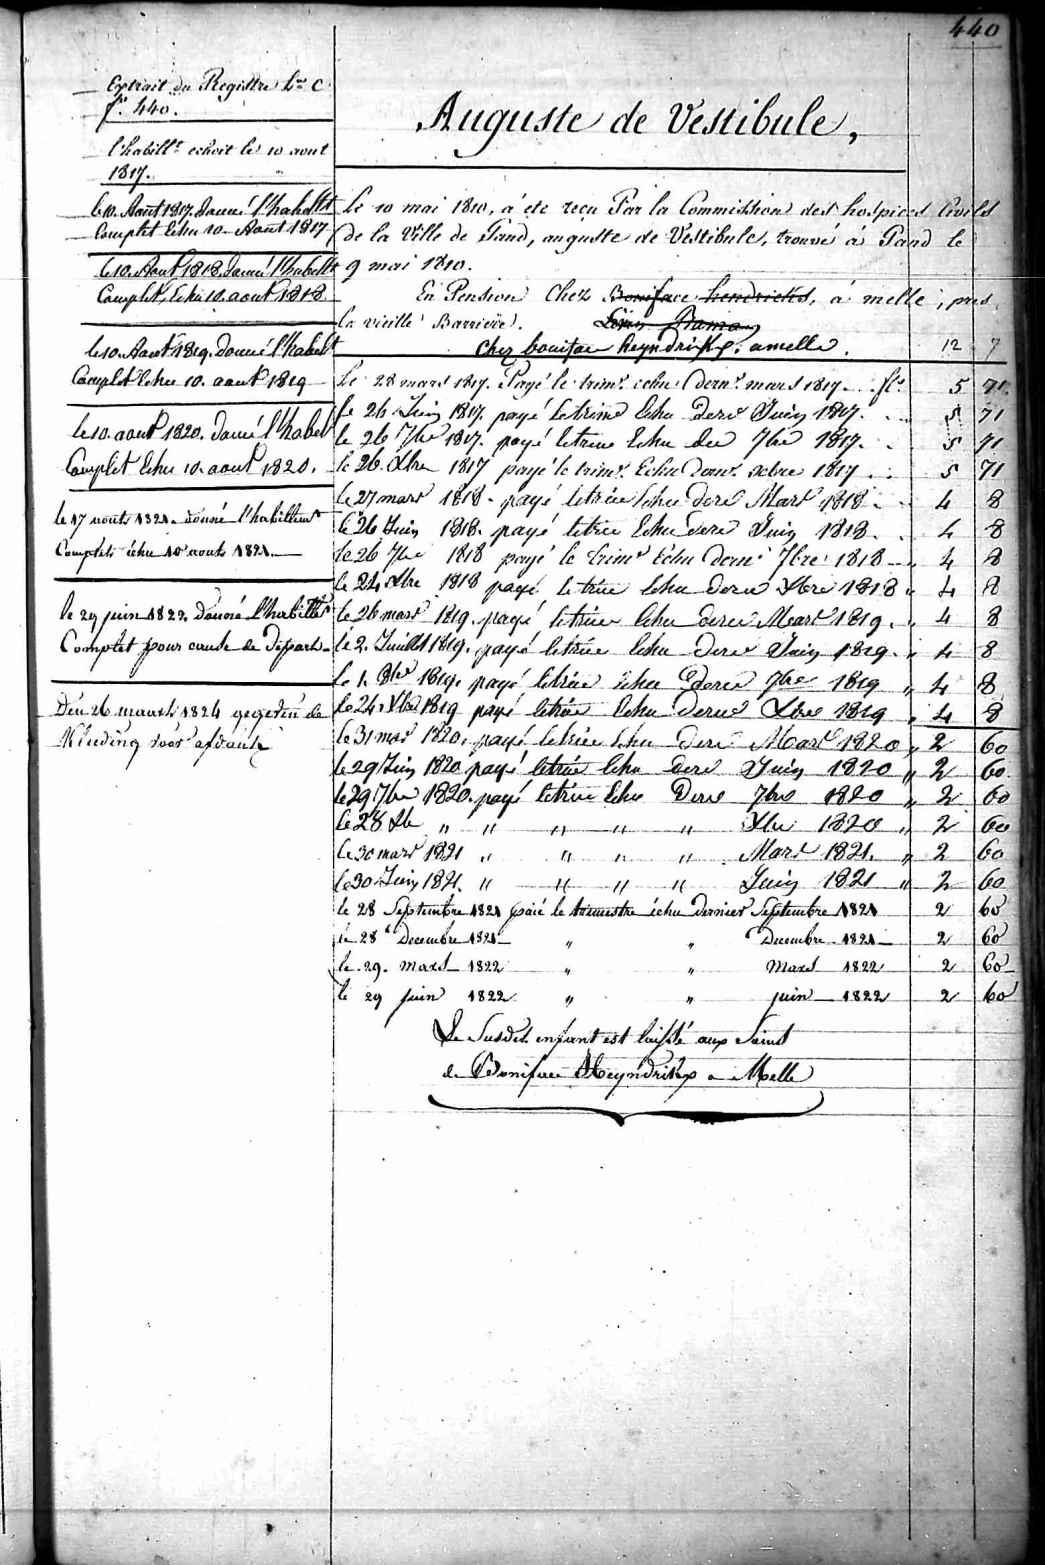 440
Extrait du Registre L.re C
f.o 440.
l'habillt. echoit le 10 aout
1817.
le 10. Aout 1817. donné l'habillt
Complet Echu 10. Aout 1817
le 10. Aout 1818. donné l'habillt
Complet, Echu 10. aout 1818.
le 10. Aout 1819. donné l'habillt
Complet Echu 10. aout 1819
le 10. aout 1820. donné l'habill
Complet Echu 10. aout 1820.
le 17 aouts 1821. donné l'habillemt
Complet échu 10 aouts 1821.
le 29 juin 1822. Donné l'habillt
Complet pour cause de Départ.
Den 26 maart 1824 gegeven de
Kleeding voor
Auguste de Vestibule,
Le 10 mai 1810, a été reçu Par la Commission des hospices Civils
de la Ville de Gand, auguste de Vestibule, trouvé à Gand le
9 mai 1810.
En Pension Chez Boniface hendrickx, à melle, pres
la vieille Barriere.
Chez boniface heyndrikx. a melle. 12 7
Le 28 mars 1817. Payé le trimr. echu dernr. mars 1817. fl. 5 71
Le 26 Juin 1817. payé le trime Echu dere Juin 1817. 5 71
le 26 7bre 1817. payé le trime Echu der 7bre 1817. 5 71
le 26. Xbre 1817 payé le trimr. Echu dernr. xbre 1817 5 71
le 27 mars 1818. payé le trim Echu dere Mars 1818. 4 8
le 26 Juin 1818. payé le trim Echu dere Juin 1818. 4 8
le 26 7bre 1818 payé le trimr échu derne 7bre 1818 4 8
le 24 Xbre 1818 payé le trim Echu dere Xbre 1818 " 4 8
le 26 mars 1819. payé le trim Echu dere Mars 1819. " 4 8
le 2. Juillet 1819. payé le trim Echu dere Juin 1819. " 4 8
le 1. 8bre 1819. payé le trim échu Dere 7bre 1819 " 4 8
le 24 Xbre 1819 payé le trim Echu dere Xbre 1819 " 4 8
le 31 mars 1820. payé le trim Echu dere Mars 1820 " 2 60
le 29 Juin 1820 payé le trim Echu dere Juin 1820 " 2 60
le 29 7bre 1820. payé le trim Echu Dere 7bre 1820 " 2 60
le 28 Xbre " " " " " Xbre 1820 " 2 60
le 30 mars 1821 " " " " Mars 1821. " 2 60
le 30 Juin 1821. " " " " Juin 1821 " 2 60
le 28 Septembre 1821 paié le trimestre échu dernier Septembre 1821 2 60
le 28 Decembre 1821 " " Decembre 1821 2 60
le 29. Mars 1822 " " Mars 1822 2 60
le 29 juin 1822 " " juin 1822 2 60
Le Susdit enfant est laissé aux Soins
de Boniface Heyndrikx a Melle